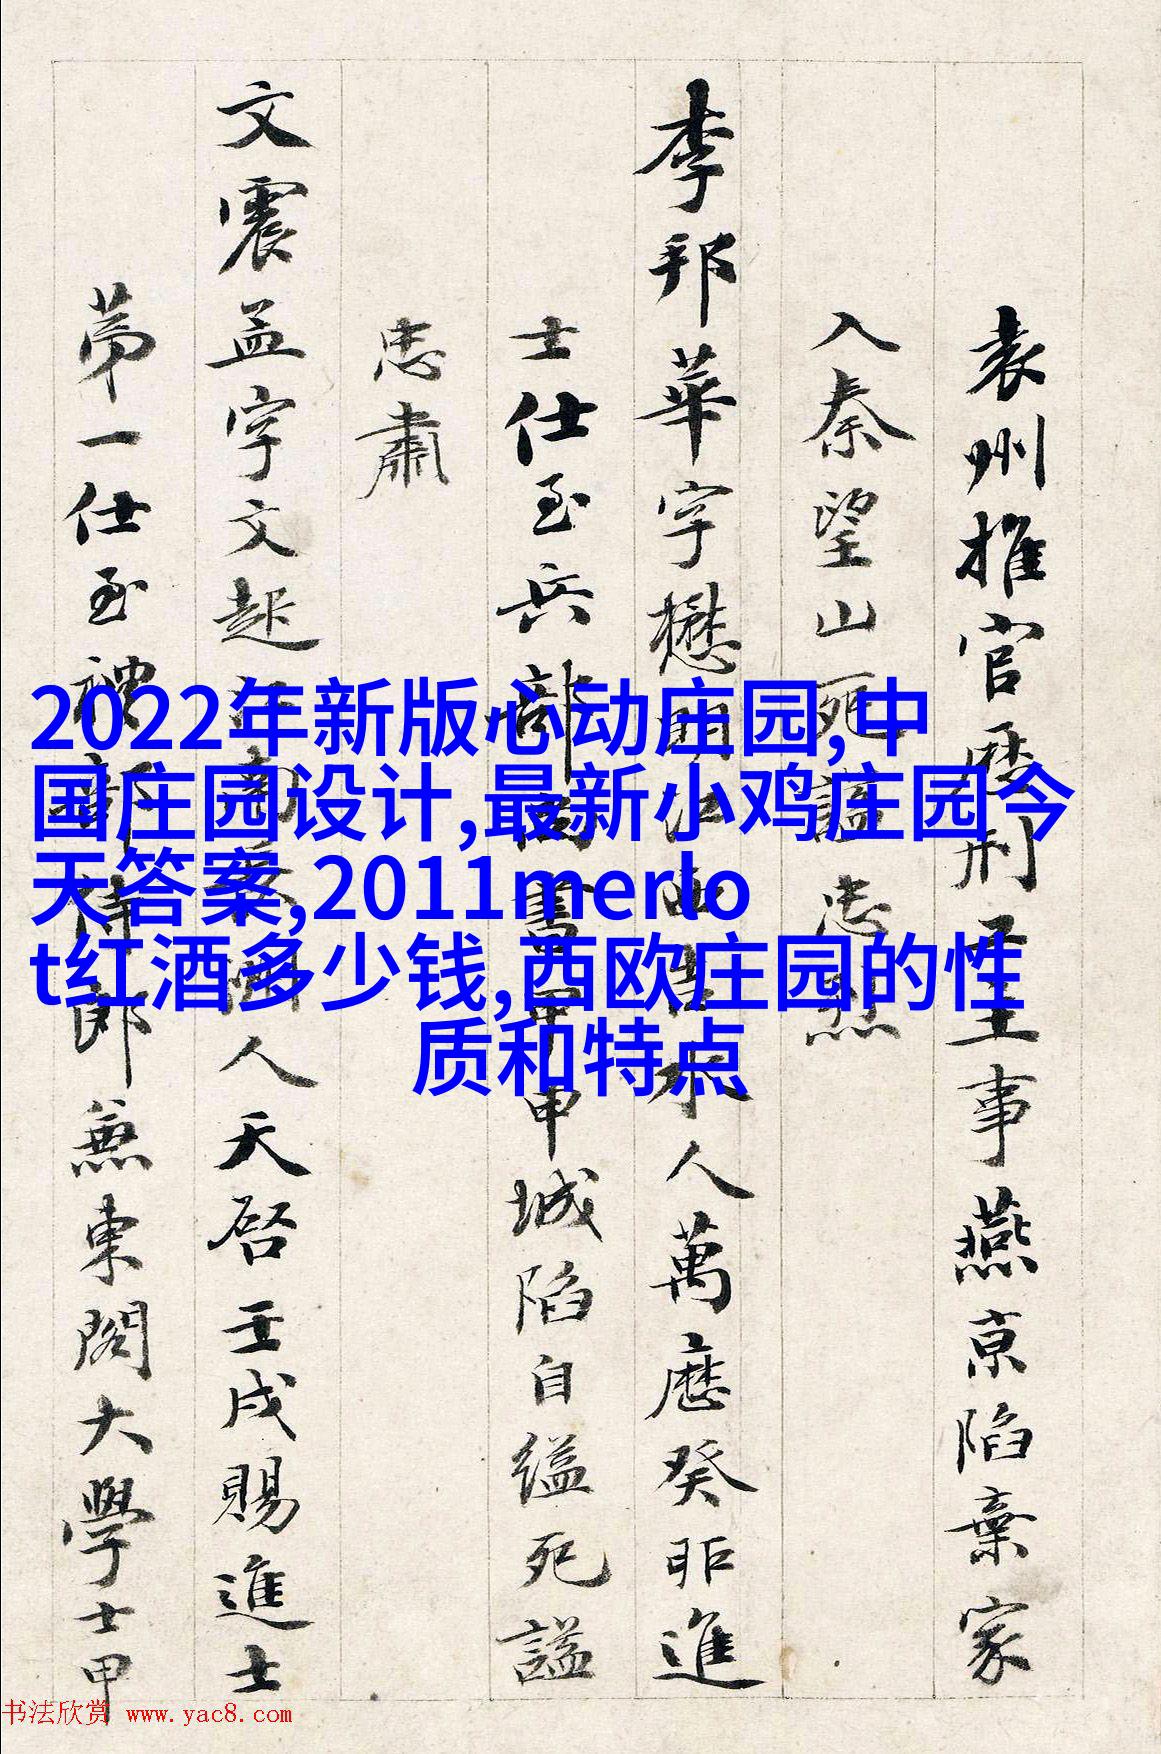 袁州推官歷刑部主事燕京陷棄家
入秦望山死謚忠烈
李邦華字懋明江西吉水人萬曆癸卯進
士仕至兵部尚書甲申城陷自縊死謚
忠肅
文震孟字文起
人天啓壬戌賜進士
第一仕至禮部侍郎兼東閣大學士甲
2022年新版心动庄园,中
国庄园设计,最新小鸡庄园今
天答案,2011merlo
t红酒多少钱,西欧庄园的性
质和特点
书法欣赏 www.yac8.com